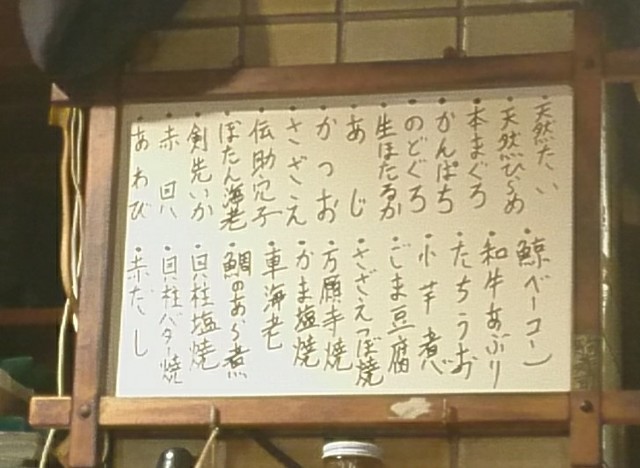 ・天然たい
・天然ひらめ
・本まぐろ
・かんぱち
・のどぐろ
・生ほたるか
・あじ
・かつお
・さざえ
・伝助穴子
・ぼたん海老
・剣先いか
・赤貝
・あわび
・鯨ベーコン
・和牛あぶり
・たちうお
・小芋煮
・ごま豆腐
・さざえつぼ焼
・万願寺焼
・かま塩焼
・車海老
・鯛のあら煮
・貝柱塩焼
・貝柱バター焼
・赤だし